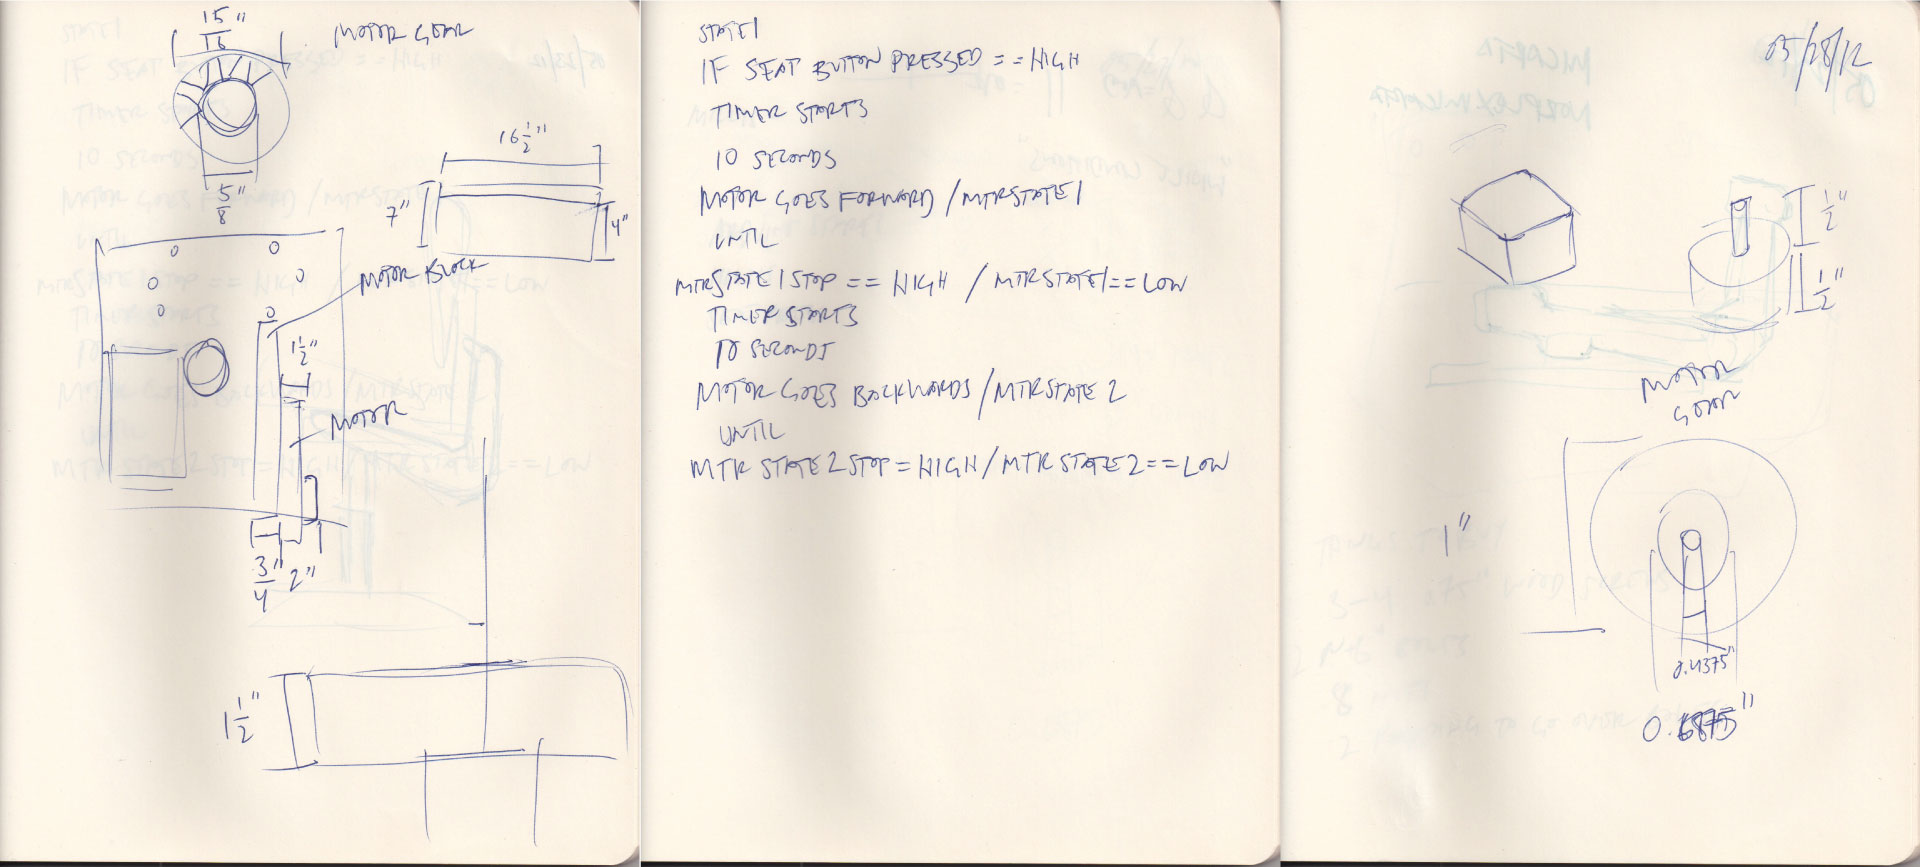 15"
16
MOTOR GEAR
5"
8
16 1/2"
7"
4"
MOTOR BLOCK
1 1/2"
MOTOR
3"
4
2"
1 1/2"
STATE1
IF SEAT BUTTON PRESSED == HIGH
TIMER STARTS
10 SECONDS
MOTOR GOES FORWARD / MTRSTATE1
UNTIL
MTRSTATE1STOP == HIGH / MTRSTATE1==LOW
TIMER STARTS
10 SECONDS
MOTOR GOES BACKWARDS / MTRSTATE2
UNTIL
MTR STATE2STOP = HIGH / MTR STATE2 == LOW
05/28/12
1/2"
1/2"
MOTOR
GEAR
1"
0.4375"